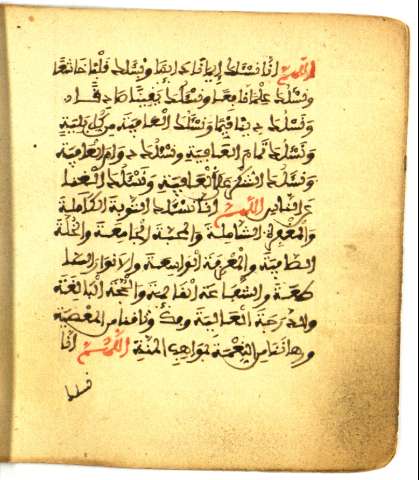 اللهم انا نسئلك إيمانا دايما ونسئلك قلبا خاشعا
ونسئلك علما نافعا ونسئلك يقينا صادقا
ونسئلك دينا قيما ونسئلك العافية من كل بلية
ونسئلك تمام العافية ونسئلك دوام العافية
ونسئلك الشكر على العافية ونسئلك الغنا
عن الناس اللهم انا نسئلك التوبة الكاملة
والمغفرة الشاملة والمحبة الجامعة والخلة
الصافية والمعرفة الواسعة والانوار السا
طعة والشفاعة القائمة والحجة البالغة
والدرجة العالية وفك وثاقنا من المعصية
ورهاننا من النعمة بمواهب المنة اللهم انا
نسئلك